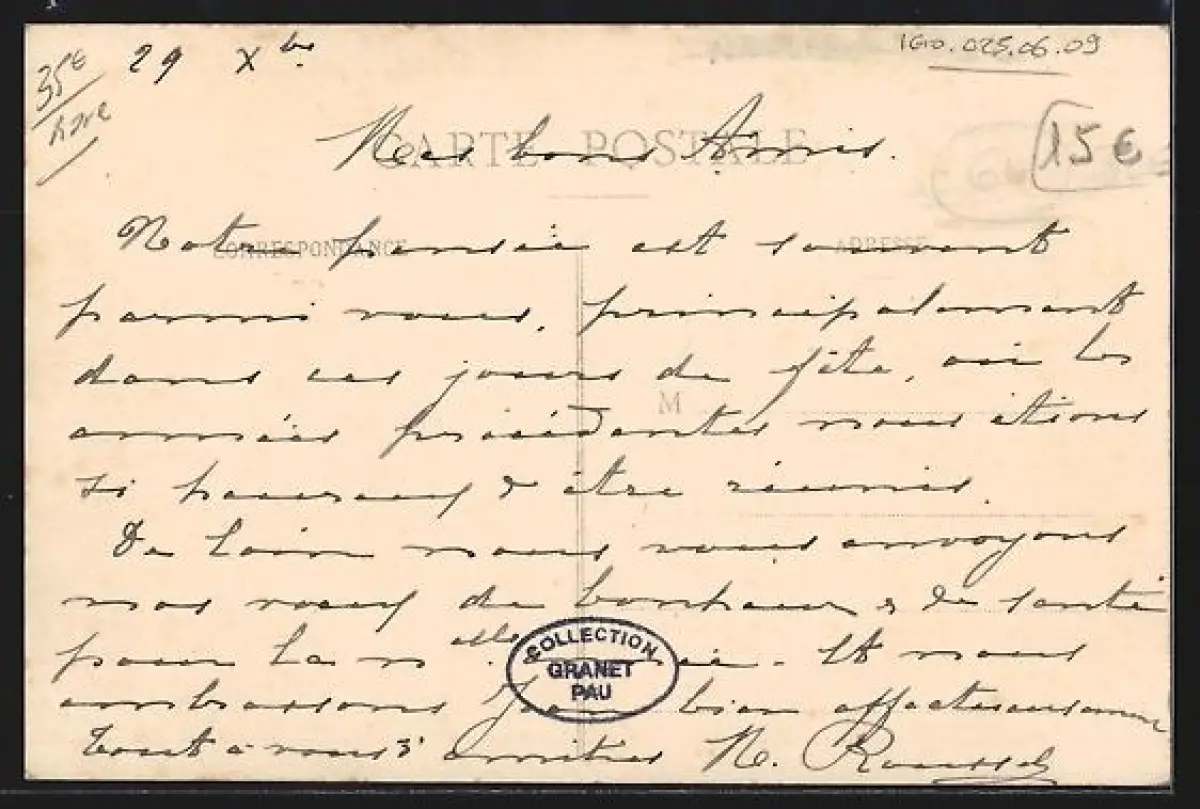 35€
rare
29 Xbre
IGO.025.06.09
15€
CARTE POSTALE
Mes bons Amis.
CORRESPONDANCE
ADRESSE
Notre pensée est souvent
parmi vous, principalement
dans ces jours de fête, où les
M
années précédentes nous étions
si heureux d'être réunis.
De loin nous vous envoyons
nos voeux de bonheur & de santé
pour la nelle. Et nous
COLLECTION
GRANET
PAU
embrassons Jean bien affectueusement
Tout à vous amitiés N. Roussel